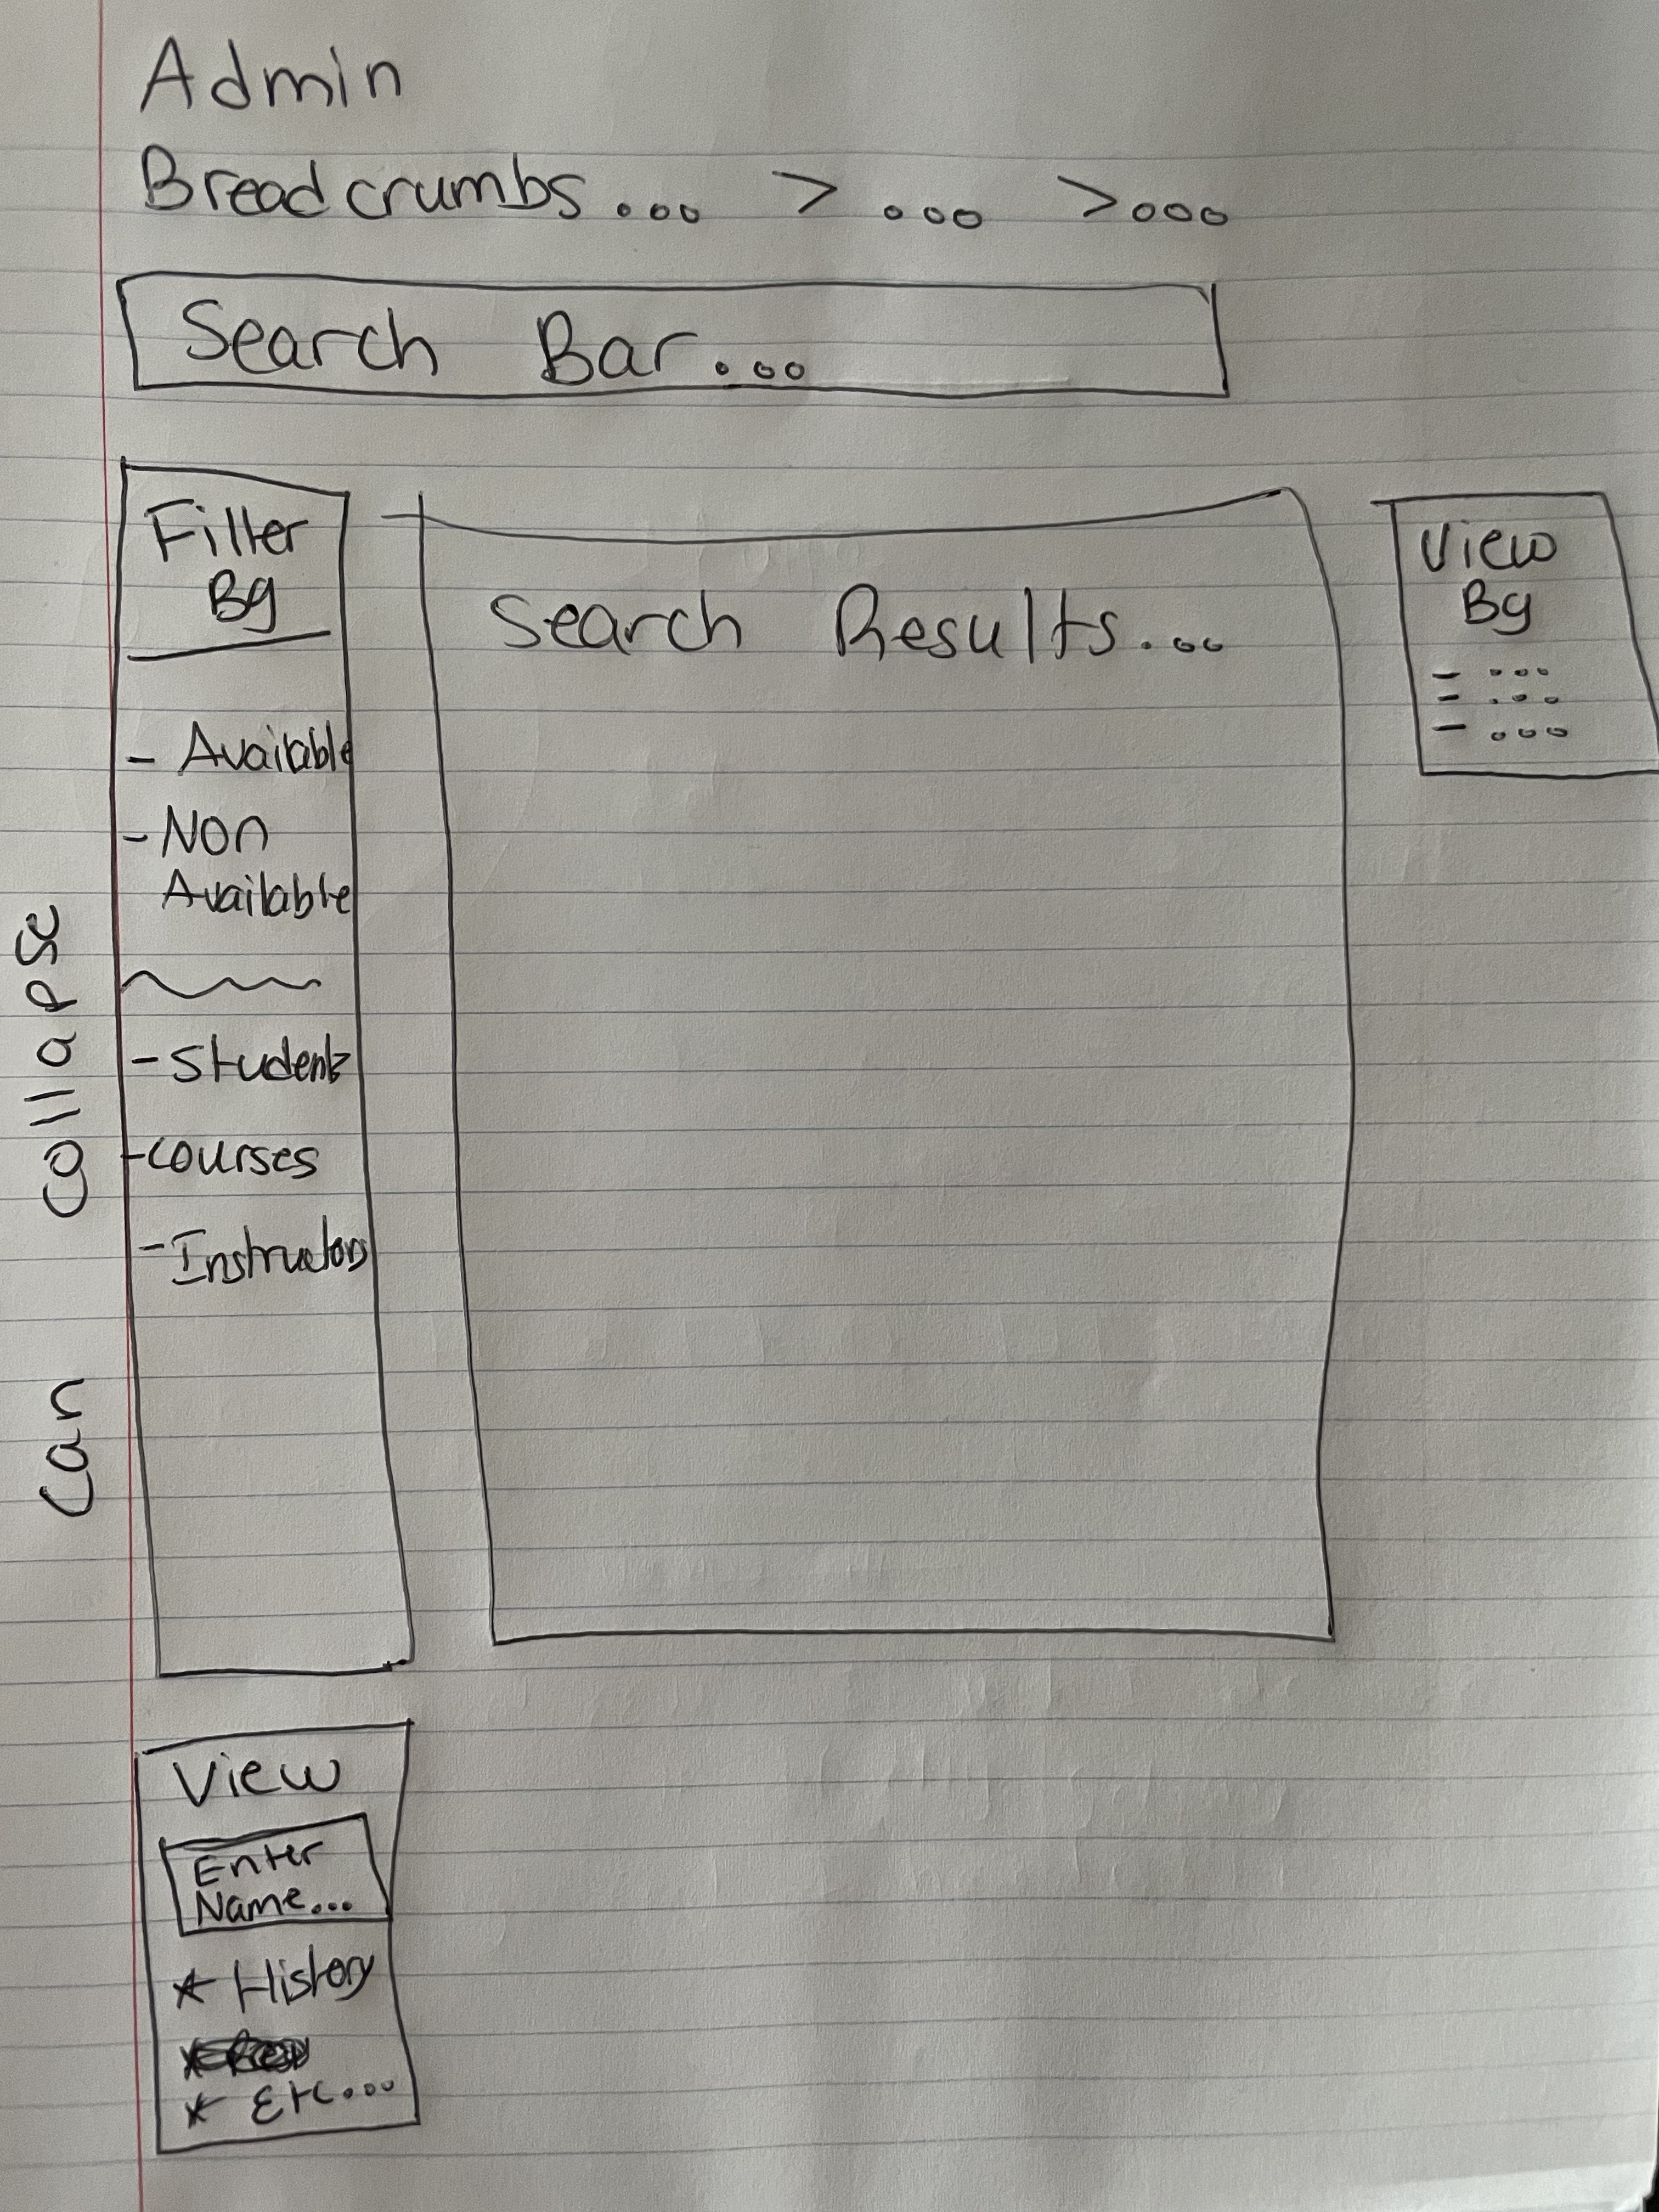 Admin
Breadcrumbs... > ... > ...
Search Bar...
Filter
By
- Available
- Non
Available
- Students
- courses
- Instructors
Can collapse
Search Results...
View
By
- ...
- ...
- ...
View
Enter
Name...
* History
* Etc...